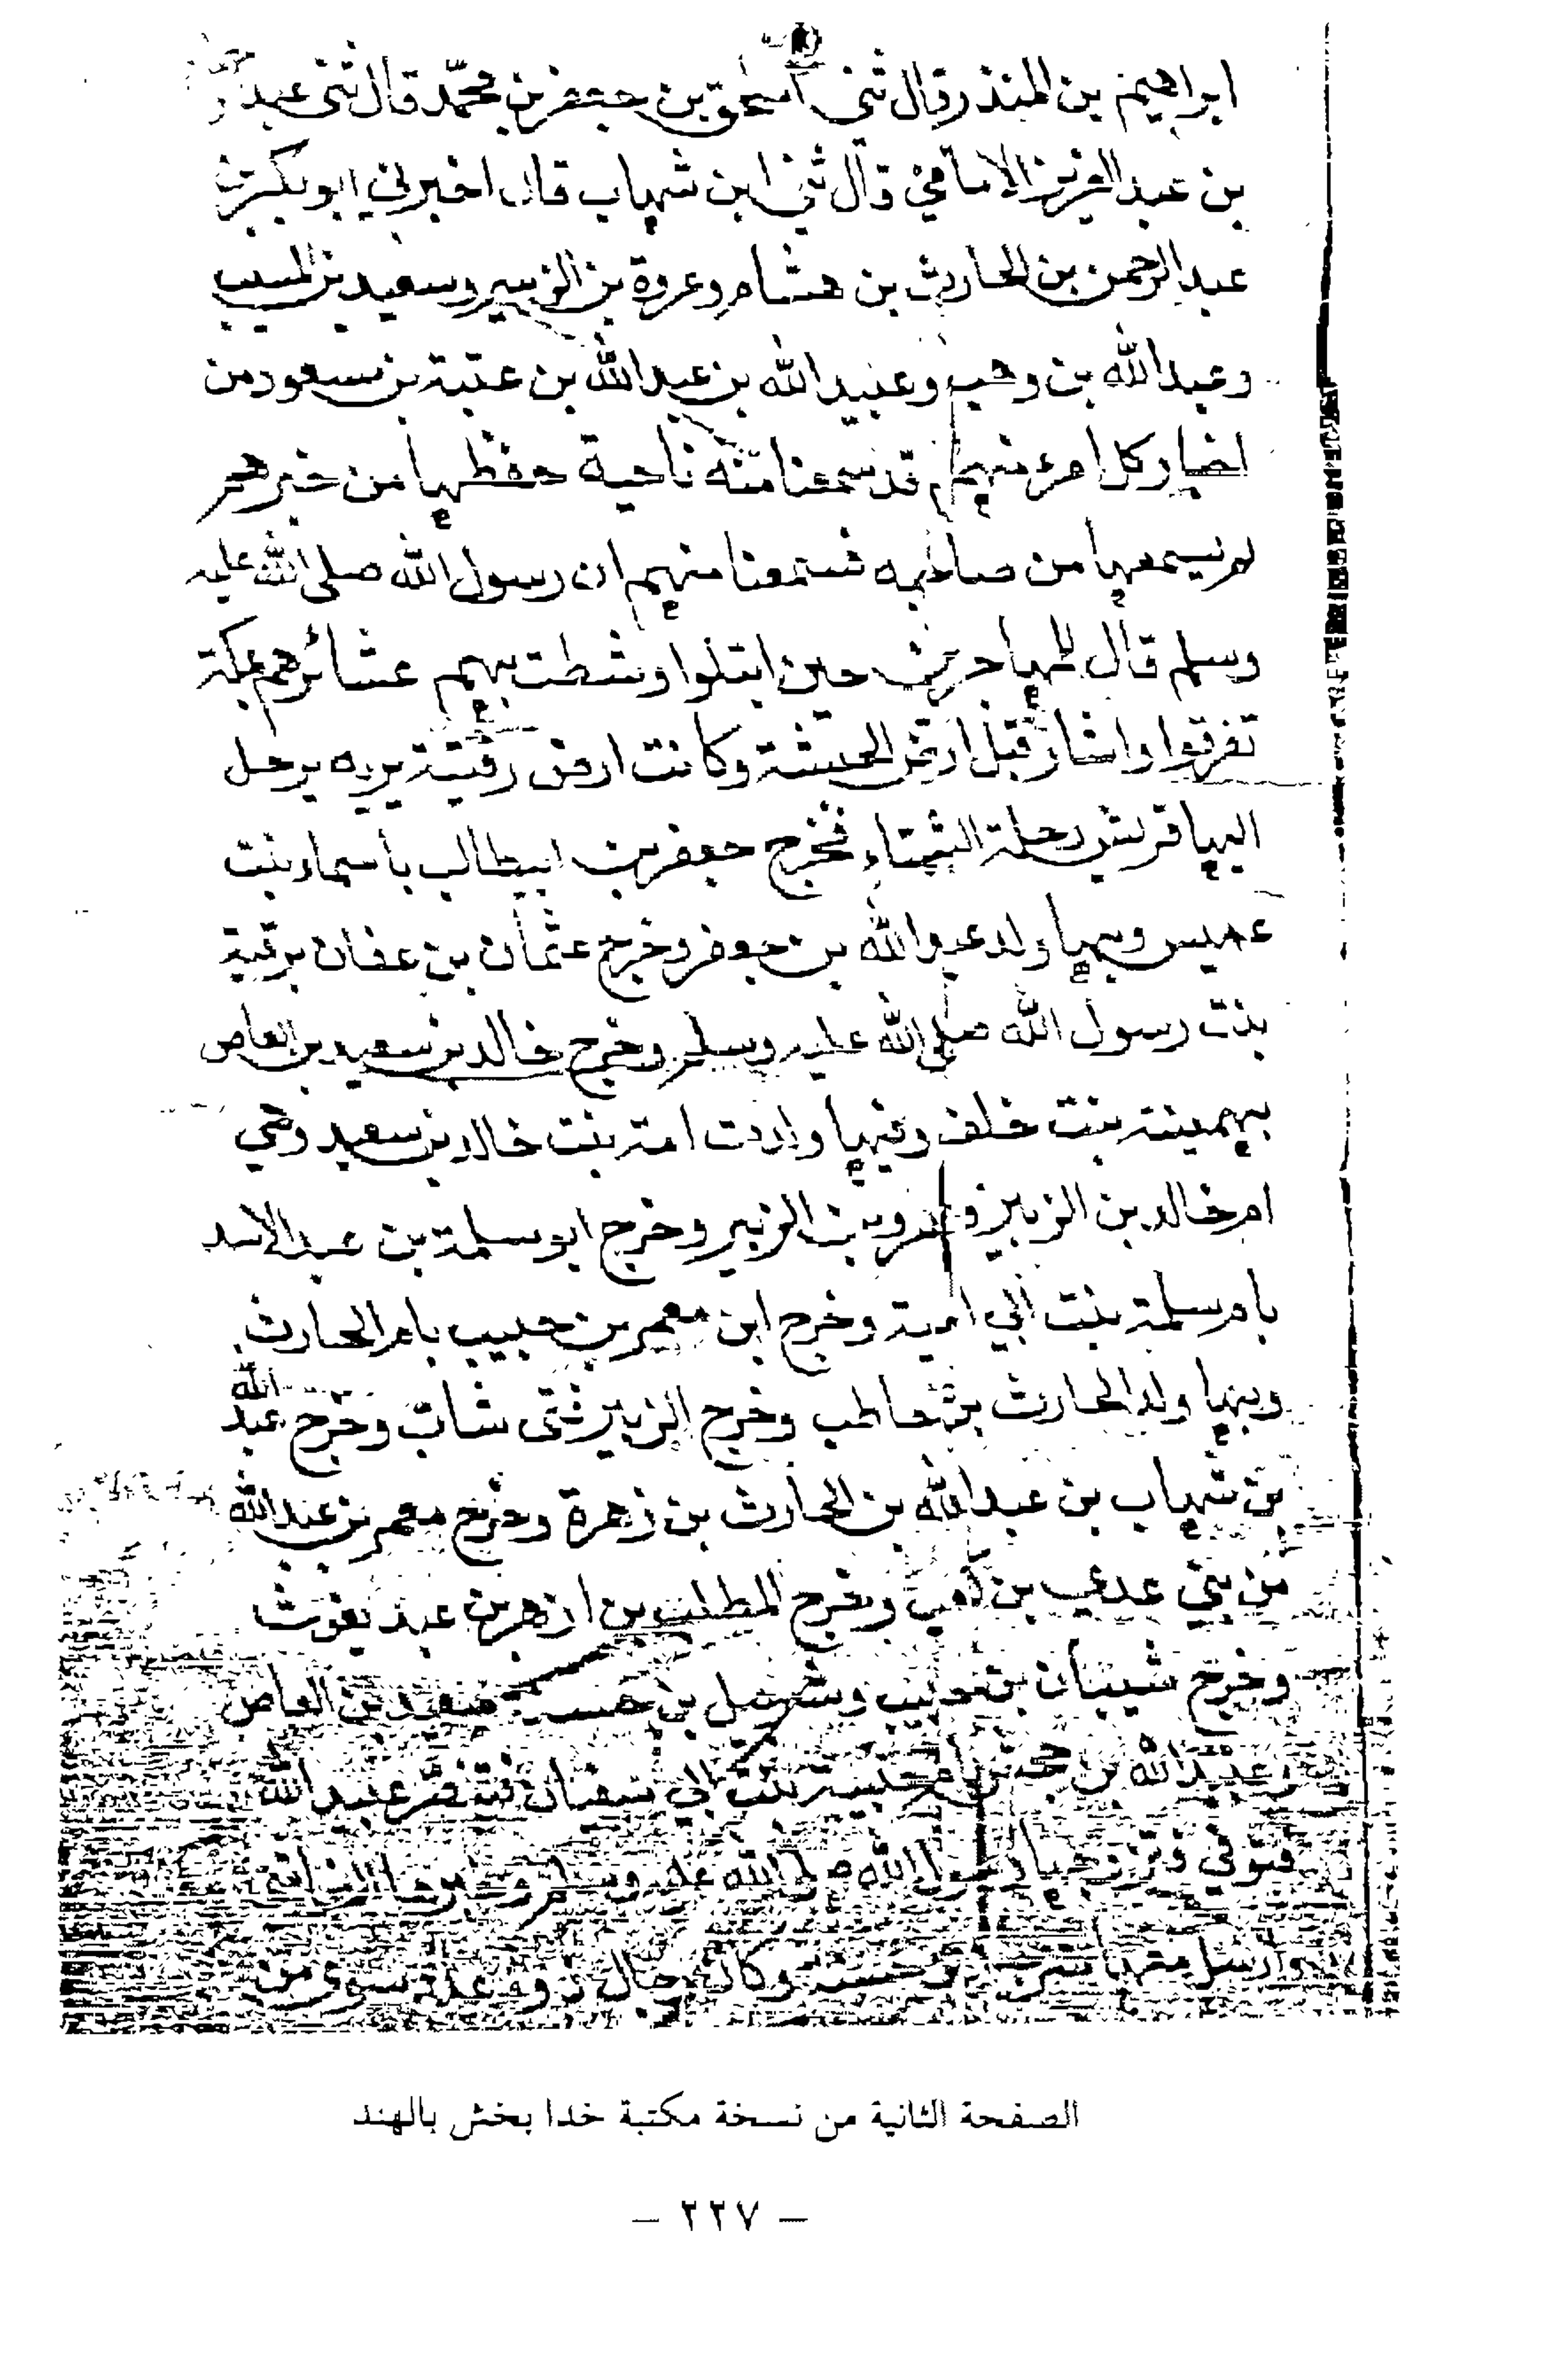 ابراهيم بن المنذر قال ثنى اسحق بن جعفر بن محمد قال ثنى عبد
بن عبد العزيز الامامي قال ثني ابن شهاب قال اخبرني ابو بكر بن
عبد الرحمن بن الحارث بن هشام وعروة بن الزبير وسعيد بن المسيب
وعبد الله بن وهب وعبيد الله بن عبد الله بن عتبة بن مسعود من
اخبار كل امرء منهم قد سمعنا منه ناحية حفظها من خبر هجر
لم يسمعها من صاحبه فسمعنا منهم ان رسول الله صلى الله عليه
وسلم قال للمهاجرين حين ابتلوا وشطت بهم عشائرهم بمكة
تفرقوا واشار قبل ارض الحبشة وكانت ارض رفيئة يرحل
اليها قريش رحلة الشتاء فخرج جعفر بن ابيطالب باسماء بنت
عميس وبها ولد عبد الله بن جعفر وخرج عثمان بن عفان برقية
بنت رسول الله صلى الله عليه وسلم وخرج خالد بن سعيد بن العاص
بهمينة بنت خلف وفيها ولدت امة بنت خالد بن سعيد وهي
ام خالد بن الزبير وعمرو بن الزبير وخرج ابو سلمة بن عبد الاسد
بام سلمة بنت ابي امية وخرج ابن معمر بن حبيب بام الحارث
وبها ولد الحارث بن حاطب وخرج الزبير فتى شاب وخرج عبد الله
بن شهاب بن عبد الله بن الحارث بن زهرة وخرج معمر بن عبد الله
من بني عدي بن كعب وخرج المطلب بن ازهر بن عبد يغوث
وخرج شيبان بن وشرحبيل بن حسنة سعيد بن العاص
عبيد الله بن جحش بام حبيبة بنت ابي سفيان فتنصر عبيد الله
فتوفي رسول الله صلى الله عليه وسلم
وارسل معها بن حسنة وكان رجال ذووا عدد سوى من
الصفحة الثانية من نسخة مكتبة خدا بخش بالهند
– ٢٢٧ –